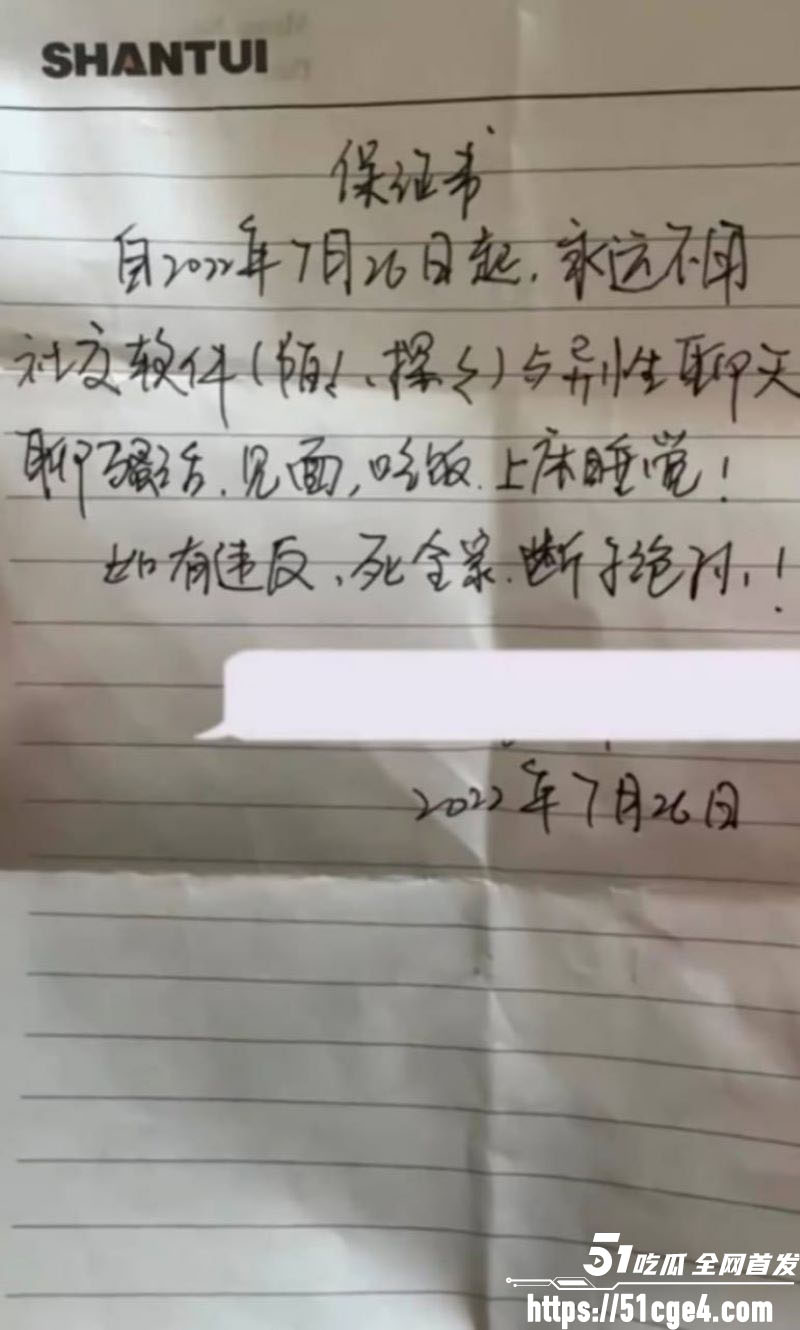 SHANTUI
保证书
自2022年7月26日起，永远不用
社交软件（陌々、探々）与异性聊天
聊骚话、见面，吃饭、上床睡觉！
如有违反、死全家、断子绝孙！
2022年7月26日
51吃瓜 全网首发
https://51cge4.com